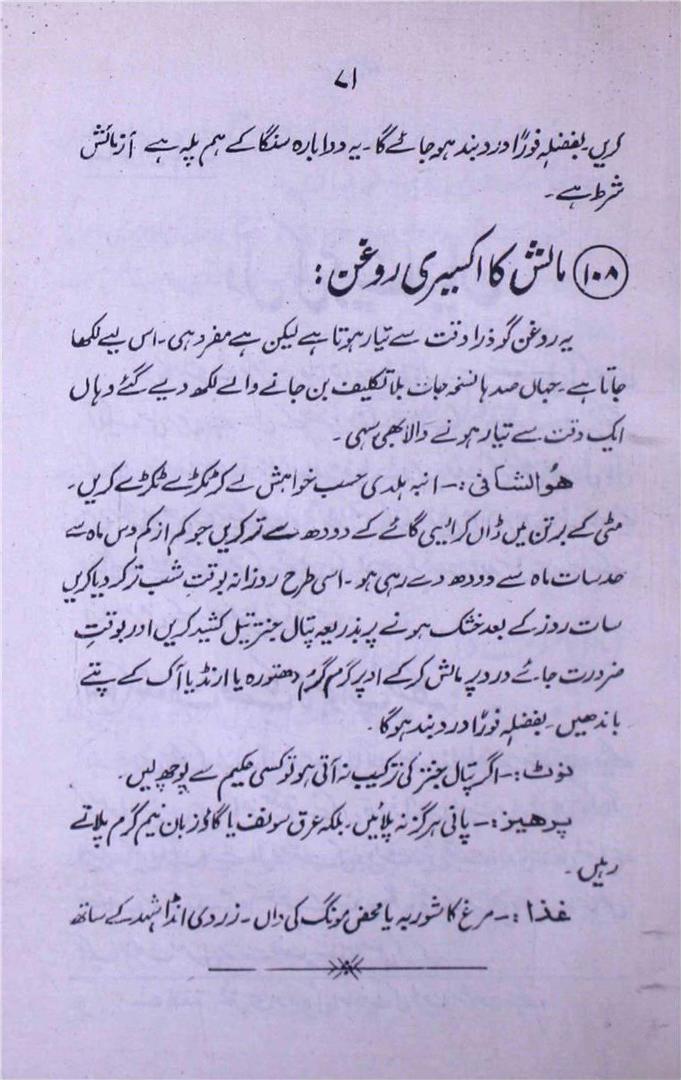 ۷۱
کریں۔ بفضلہ فوراً درد بند ہو جائے گا۔ یہ دوا بارہ سنگا کے ہم پلہ ہے آزمائش
شرط ہے۔
۱۰۸ مالش کا اکسیری روغن:
یہ روغن گو ذرا دقت سے تیار ہوتا ہے لیکن ہے مفرد ہی۔ اس لیے لکھا
جاتا ہے۔ جہاں صدہا نسخہ جات بلا تکلیف بن جانے والے لکھ دیے گئے وہاں
ایک دقت سے تیار ہونے والا بھی سہی۔
ھوالشافی:۔ انبہ ہلدی حسب خواہش لے کر ٹکڑے ٹکڑے کریں۔
مٹی کے برتن میں ڈال کر ایسی گائے کے دودھ سے تر کریں جو کم از کم دس ماہ سے
حد سات ماہ سے دودھ دے رہی ہو۔ اسی طرح روزانہ بوقتِ شب تر کر دیا کریں
سات روز کے بعد خشک ہونے پر بذریعہ پتال جنتر تیل کشید کریں اور بوقتِ
ضرورت جائے درد پر مالش کر کے اوپر گرم گرم دھتورہ یا ارنڈ یا آک کے پتے
باندھیں۔ بفضلہ فوراً درد بند ہوگا۔
نوٹ:۔ اگر پتال جنتر کی ترکیب نہ آتی ہو تو کسی حکیم سے پوچھ لیں۔
پرھیز:۔ پانی ہرگز نہ پلائیں۔ بلکہ عرق سونف یا گاؤزبان نیم گرم پلاتے
رہیں۔
غذا:۔ مرغ کا شوربہ یا محض مونگ کی دال۔ زردی انڈا شہد کے ساتھ